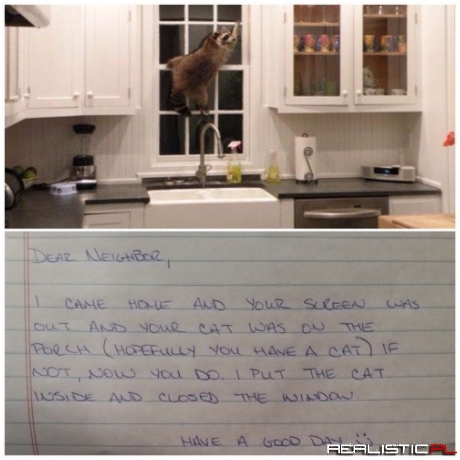 DEAR NEIGHBOR,
I CAME HOME AND YOUR SCREEN WAS
OUT AND YOUR CAT WAS ON THE
PORCH (HOPEFULLY YOU HAVE A CAT) IF
NOT, NOW YOU DO. I PUT THE CAT
INSIDE AND CLOSED THE WINDOW.
HAVE A GOOD DAY :)
REALISTICPL